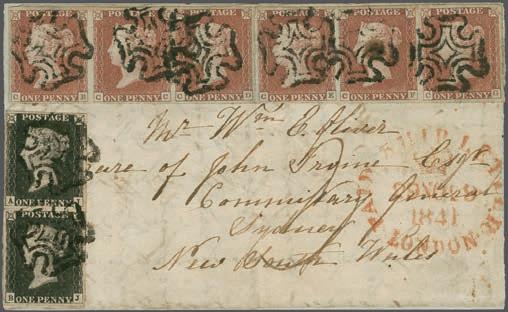 POSTAGE POSTAGE POSTAGE POSTAGE POSTAGE POSTAGE
C B C C C D C E C F C G
ONE PENNY ONE PENNY ONE PENNY ONE PENNY ONE PENNY ONE PENNY
POSTAGE
A J
ONE PENNY
POSTAGE
B J
ONE PENNY
Mr. Wm. E. Oliver
Care of John Frome Esqr
Commissary General
Sydney
New South Wales
PAID SHIP LETTER
1841
LONDON